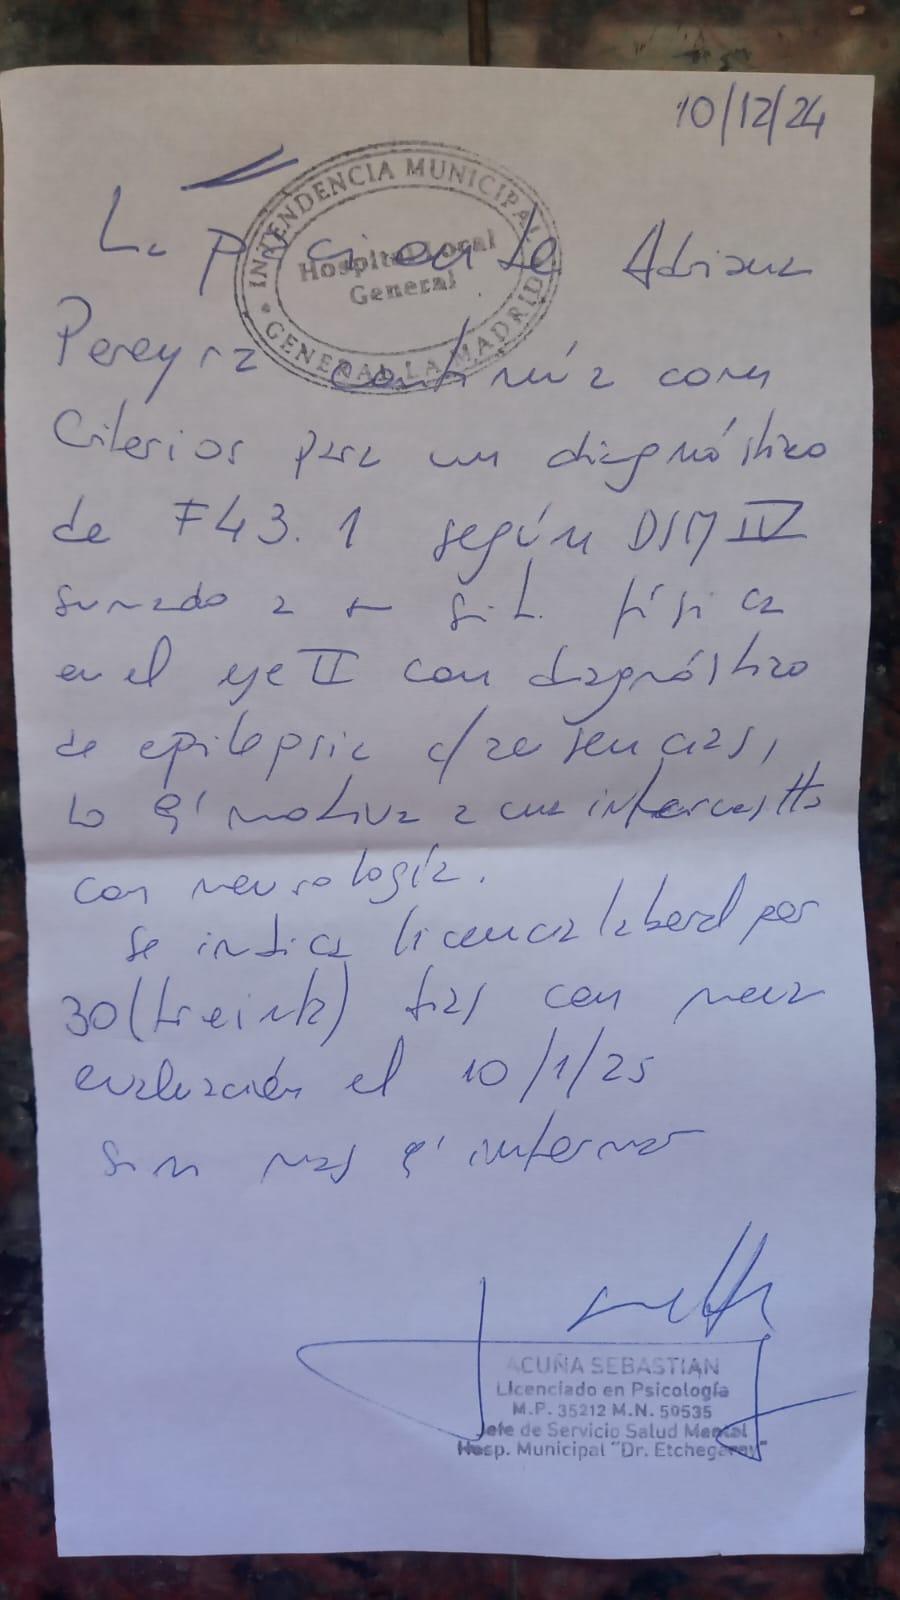 10/12/24
INTENDENCIA MUNICIPAL
Hospital Local
General
GENERAL LA MADRID
La paciente Adriana
Pereyra continúa con
Criterios para un diagnóstico
de F43.1 según DSM IV
sumado a su sit. física
en el eje II con diagnóstico
de epilepsia c/ausencias,
lo q' motiva a una interconsulta
con neurología.
Se indica licencia laboral por
30 (treinta) días con nueva
evaluación el 10/1/25
Sin mas q' informar
ACUÑA SEBASTIAN
Licenciado en Psicología
M.P. 35212 M.N. 50535
Jefe de Servicio Salud Mental
Hosp. Municipal "Dr. Etchegaray"